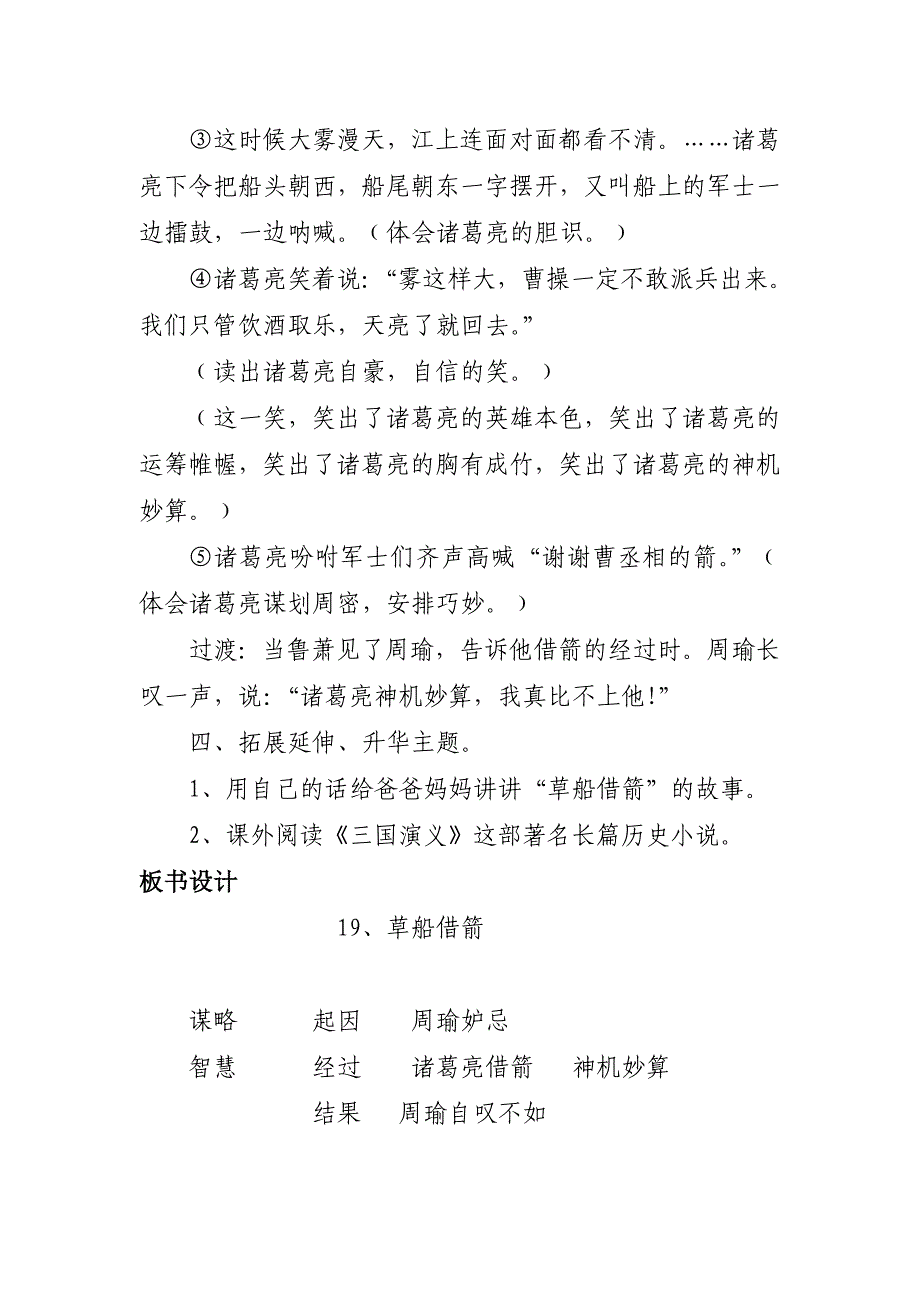 ③这时候大雾漫天，江上连面对面都看不清。……诸葛
亮下令把船头朝西，船尾朝东一字摆开，又叫船上的军士一
边擂鼓，一边呐喊。（体会诸葛亮的胆识。）
④诸葛亮笑着说：“雾这样大，曹操一定不敢派兵出来。
我们只管饮酒取乐，天亮了就回去。”
（读出诸葛亮自豪，自信的笑。）
（这一笑，笑出了诸葛亮的英雄本色，笑出了诸葛亮的
运筹帷幄，笑出了诸葛亮的胸有成竹，笑出了诸葛亮的神机
妙算。）
⑤诸葛亮吩咐军士们齐声高喊“谢谢曹丞相的箭。”（
体会诸葛亮谋划周密，安排巧妙。）
过渡：当鲁萧见了周瑜，告诉他借箭的经过时。周瑜长
叹一声，说：“诸葛亮神机妙算，我真比不上他！”
四、拓展延伸、升华主题。
1、用自己的话给爸爸妈妈讲讲“草船借箭”的故事。
2、课外阅读《三国演义》这部著名长篇历史小说。
板书设计
19、草船借箭
谋略 起因 周瑜妒忌
智慧 经过 诸葛亮借箭 神机妙算
结果 周瑜自叹不如